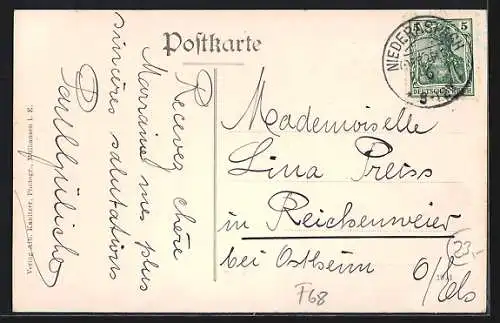 Postkarte
NIEDERASPACH
5
DEUTSCHES REICH
Recevez chère
Marraine mes plus
sincères salutations
Mademoiselle
Lina Preiss
in Reichenweier
bei Ostheim O/Els
F68
23.-
Verlag
Photogr., Mülhausen i. E.